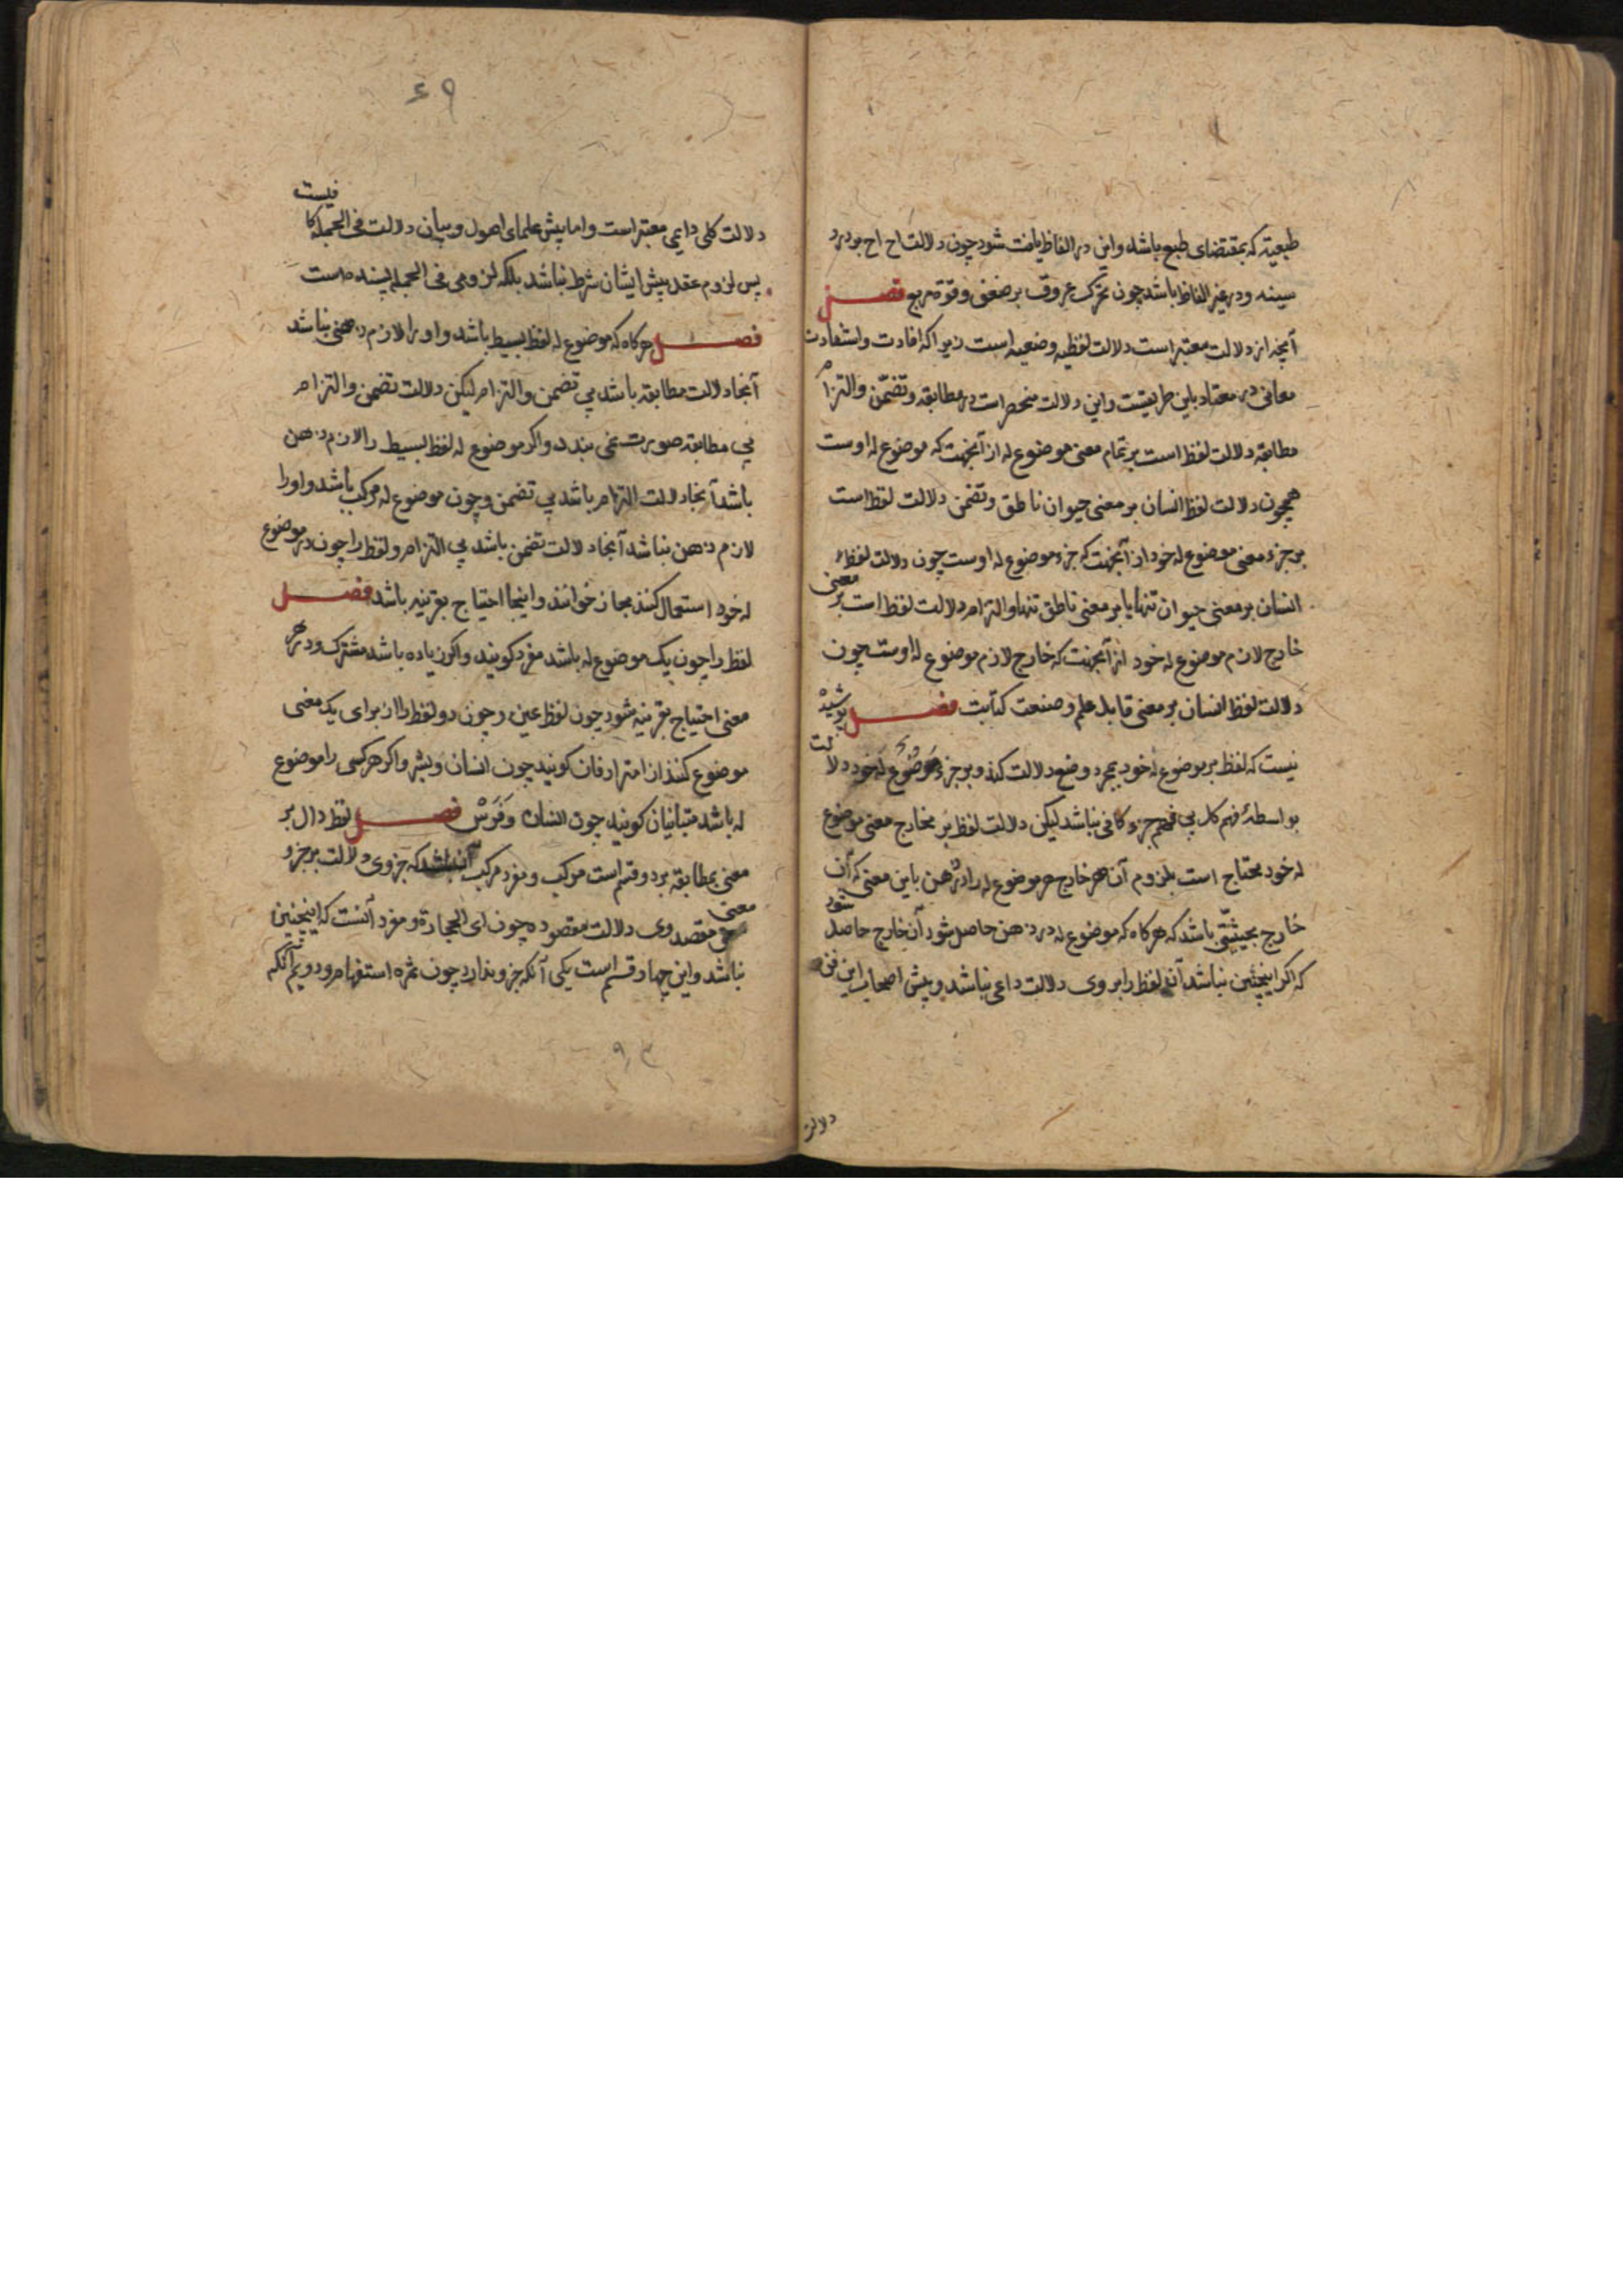 طبعیة که بمقتضای طبع باشد واین در الفاظ یافت شود چون دلالت اح اح بر درد
سینه ودر غیر الفاظ باشد چون تحرک عروق بر ضعف وقوة مربع فصل
آنچه از دلالت معتبر است دلالت لفظیه وضعیه است زیرا که افادت واستفادت
معانی در معتاد باین طریقست واین دلالت منحصر است در مطابقه وتضمّن والتزام
مطابقه دلالت لفظ است بر تمام معنی موضوع له از آنجهت که موضوع له اوست
همچون دلالت لفظ انسان بر معنی حیوان ناطق وتضمن دلالت لفظ است
بر جزء معنی موضوع له خود از آنجهت که جزء موضوع له اوست چون دلالت لفظ
انسان بر معنی حیوان تنها یا بر معنی ناطق تنها والتزام دلالت لفظ است بر معنی
خارج لازم موضوع له خود از آنجهت که خارج لازم موضوع له اوست چون
دلالت لفظ انسان بر معنی قابل علم وصنعت کتابت فصل پوشیده
نیست که لفظ بر موضوع له خود بمجرد وضع دلالت کند وبر جزء موضوع له خود دلالت
بواسطهٔ فهم کل بی فهم جزء کافی نباشد لیکن دلالت لفظ بر خارج معنی موضوع
له خود محتاج است بلزوم آن خارج مر موضوع له را در ذهن باین معنی که آن
خارج بحیثیتی باشد که هرکاه که موضوع له در ذهن حاصل شود آن خارج حاصل شود
که اکر اینچنین نباشد آن لفظ را بر وی دلالت داعی نباشد وپیش اصحاب این فن
دلالت
۶۹
دلالت کلی دایمی معتبر است واما پیش علمای اصول وبیان دلالت فی الجمله کافیست
پس لزوم عقد پیش ایشان شرط نباشد بلکه لزومی فی الجمله پسنده است
فصل هرکاه که موضوع له لفظ بسیط باشد واو را لازم ذهنی نباشد
آنجا دلالت مطابقه باشد بی تضمن والتزام لیکن دلالت تضمن والتزام
بی مطابقه صورت نمی بندد واکر موضوع له لفظ بسیط را لازم ذهن
باشد آنجا دلالت التزام باشد بی تضمن وچون موضوع له مرکب باشد واو را
لازم ذهن نباشد آنجا دلالت تضمن باشد بی التزام ولفظ را چون در موضوع
له خود استعمال کنند مجاز خوانند واینجا احتیاج بقرینه باشد فصل
لفظ را چون یک موضوع له باشد مفرد کویند واکر زیاده باشد مشترک ودر هر
معنی احتیاج بقرینه شود چون لفظ عین وچون دو لفظ را از برای یک معنی
موضوع کنند از امترادفان کویند چون انسان وبشر واکر هر کسی را موضوع
له باشد متباینان کویند چون انسان وفرس فصل لفظ دال بر
معنی بمطابقه بر دو قسم است مرکب ومفرد مرکب آن باشد که جزو وی دلالت بر جزو
معنی مقصد وی دلالت مقصوده چون رامی الحجارة ومفرد آنست که اینچنین
نباشد واین چهار قسم است یکی آنکه جزو ندارد چون همزه استفهام ودویم آنکه
۹۳